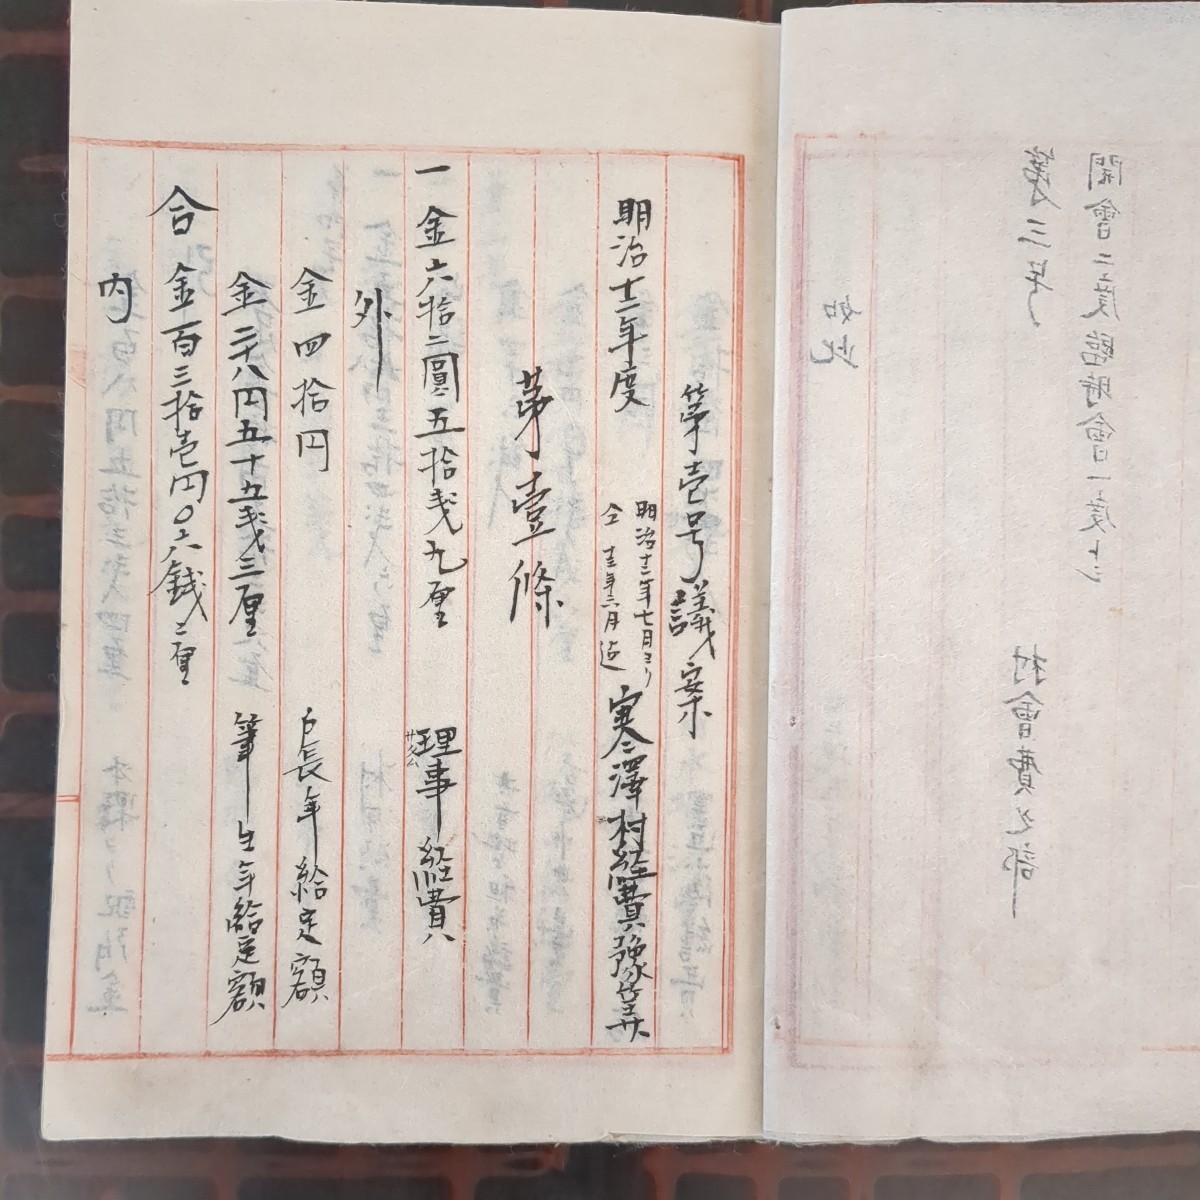 如此
第三号 村會費之部
開會二度臨時會一度トシ
第壱号議案
明治十二年度 明治十二年七月ヨリ 仝十三年六月迄 寒澤村経費豫筭
第壹條
一金六拾二圓五拾戋九厘 理事経費
外
金四拾円 戸長年給定額
金二十八円五十五戋三厘 筆生年給定額
合金百三拾壱円〇六銭二厘
内